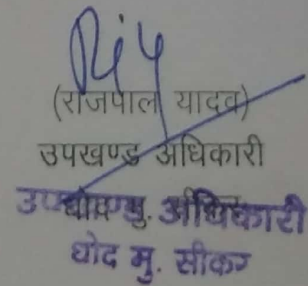 (राजपाल यादव)
उपखण्ड अधिकारी
उपखण्ड अधिकारी
धोद मु. सीकर